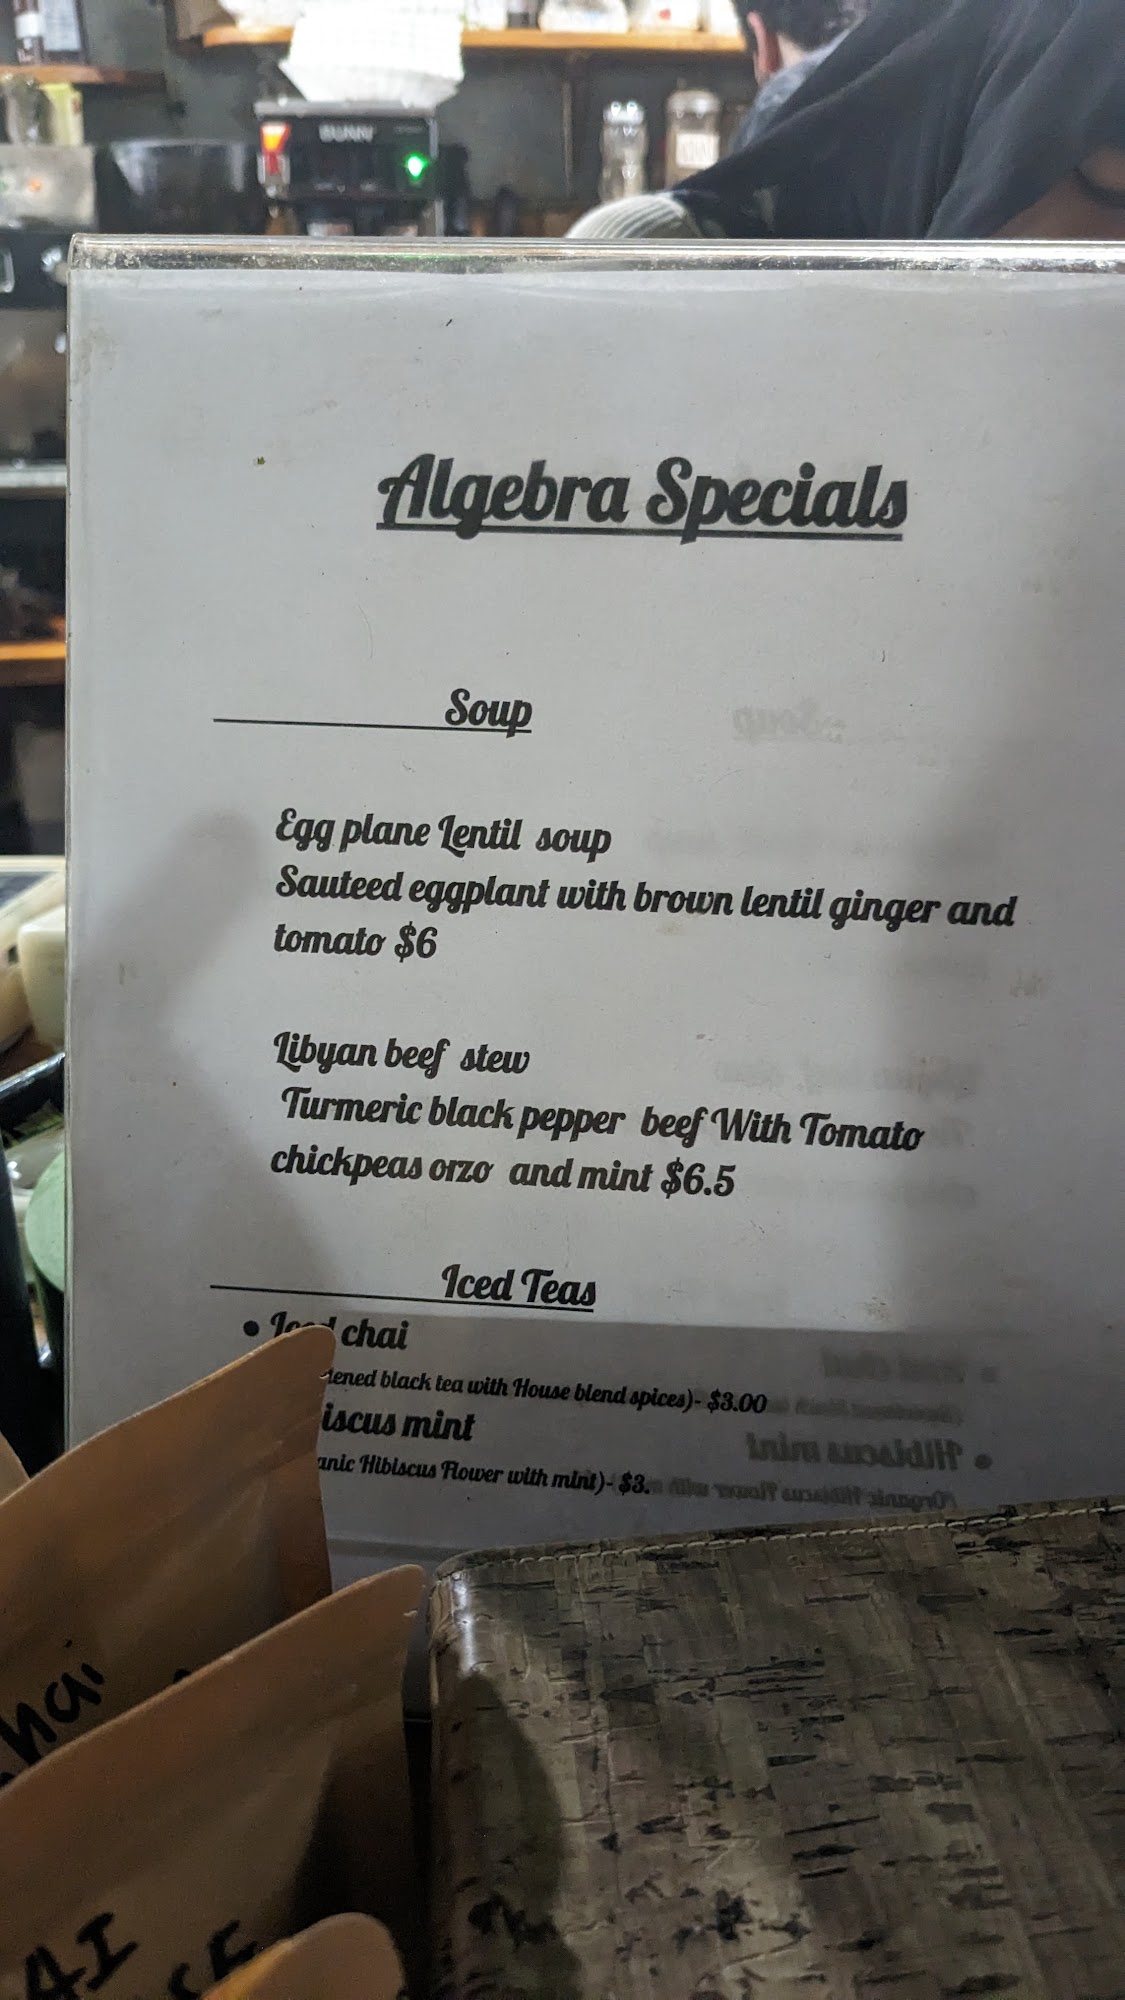 BUNN
Algebra Specials
Soup
Egg plane Lentil soup
Sauteed eggplant with brown lentil ginger and
tomato $6
Libyan beef stew
Turmeric black pepper beef With Tomato
chickpeas orzo and mint $6.5
Iced Teas
• Iced chai
tened black tea with House blend spices)- $3.00
iscus mint
anic Hibiscus Flower with mint)- $3.
hai
AI